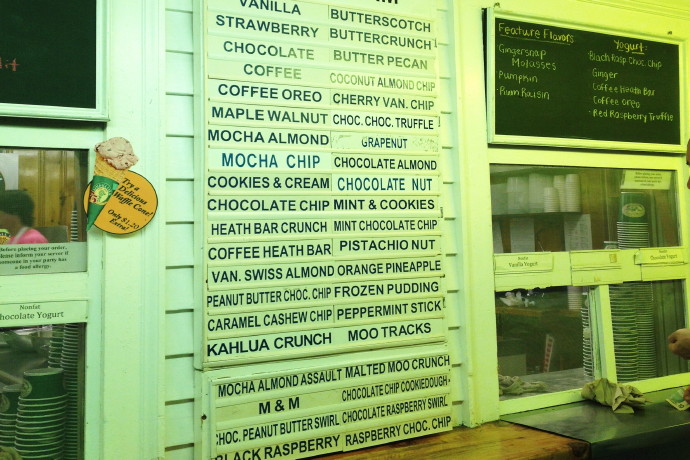 VANILLA BUTTERSCOTCH
STRAWBERRY BUTTERCRUNCH
CHOCOLATE BUTTER PECAN
COFFEE COCONUT ALMOND CHIP
COFFEE OREO CHERRY VAN. CHIP
MAPLE WALNUT CHOC. CHOC. TRUFFLE
MOCHA ALMOND GRAPENUT
MOCHA CHIP CHOCOLATE ALMOND
COOKIES & CREAM CHOCOLATE NUT
CHOCOLATE CHIP MINT & COOKIES
HEATH BAR CRUNCH MINT CHOCOLATE CHIP
COFFEE HEATH BAR PISTACHIO NUT
VAN. SWISS ALMOND ORANGE PINEAPPLE
PEANUT BUTTER CHOC. CHIP FROZEN PUDDING
CARAMEL CASHEW CHIP PEPPERMINT STICK
KAHLUA CRUNCH MOO TRACKS
MOCHA ALMOND ASSAULT MALTED MOO CRUNCH
M & M CHOCOLATE CHIP COOKIEDOUGH
CHOC. PEANUT BUTTER SWIRL CHOCOLATE RASPBERRY SWIRL
BLACK RASPBERRY RASPBERRY CHOC. CHIP
Feature Flavors
Gingersnap
Molasses
Pumpkin
Rum Raisin
Yogurt
Blach Rasp Choc. Chip
Ginger
Coffee Heath Bar
Coffee Oreo
Red Raspberry Truffle
Try a
Delicious
Waffle Cone!
Only $1.20
Extra!
Before placing your order,
please inform your server if
someone in your party has
a food allergy.
Nonfat
Chocolate Yogurt
Nonfat
Vanilla Yogurt
Nonfat
Chocolate Yogurt